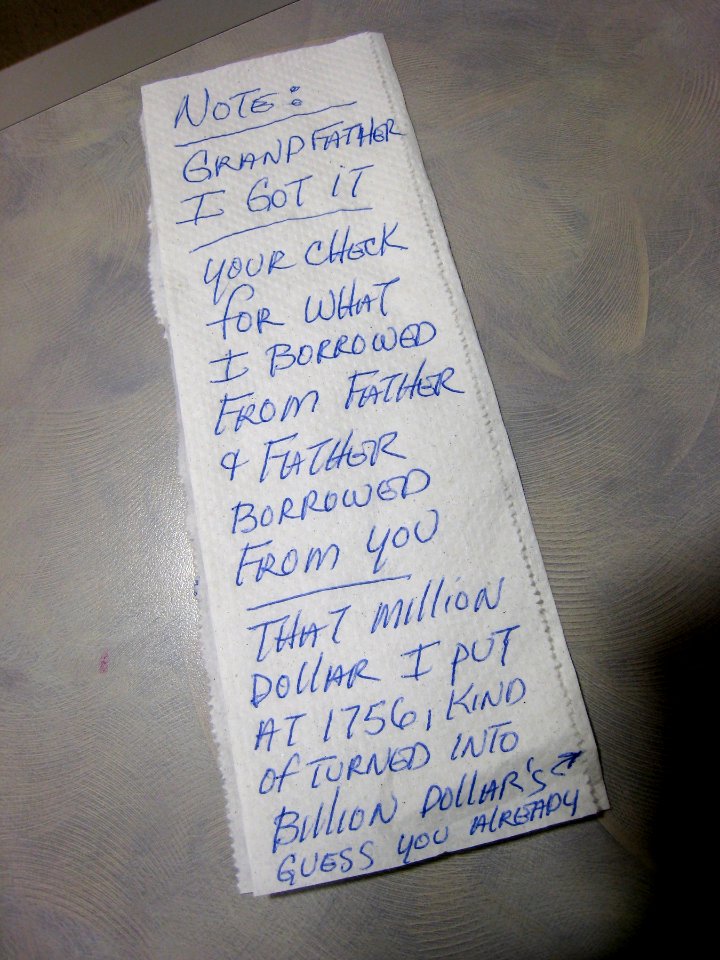 NOTE:
GRANDFATHER
I GOT IT
YOUR CHECK
FOR WHAT
I BORROWED
FROM FATHER
& FATHER
BORROWED
FROM YOU
THAT MILLION
DOLLAR I PUT
AT 1756, KIND
OF TURNED INTO
BILLION DOLLAR'S →
GUESS YOU ALREADY